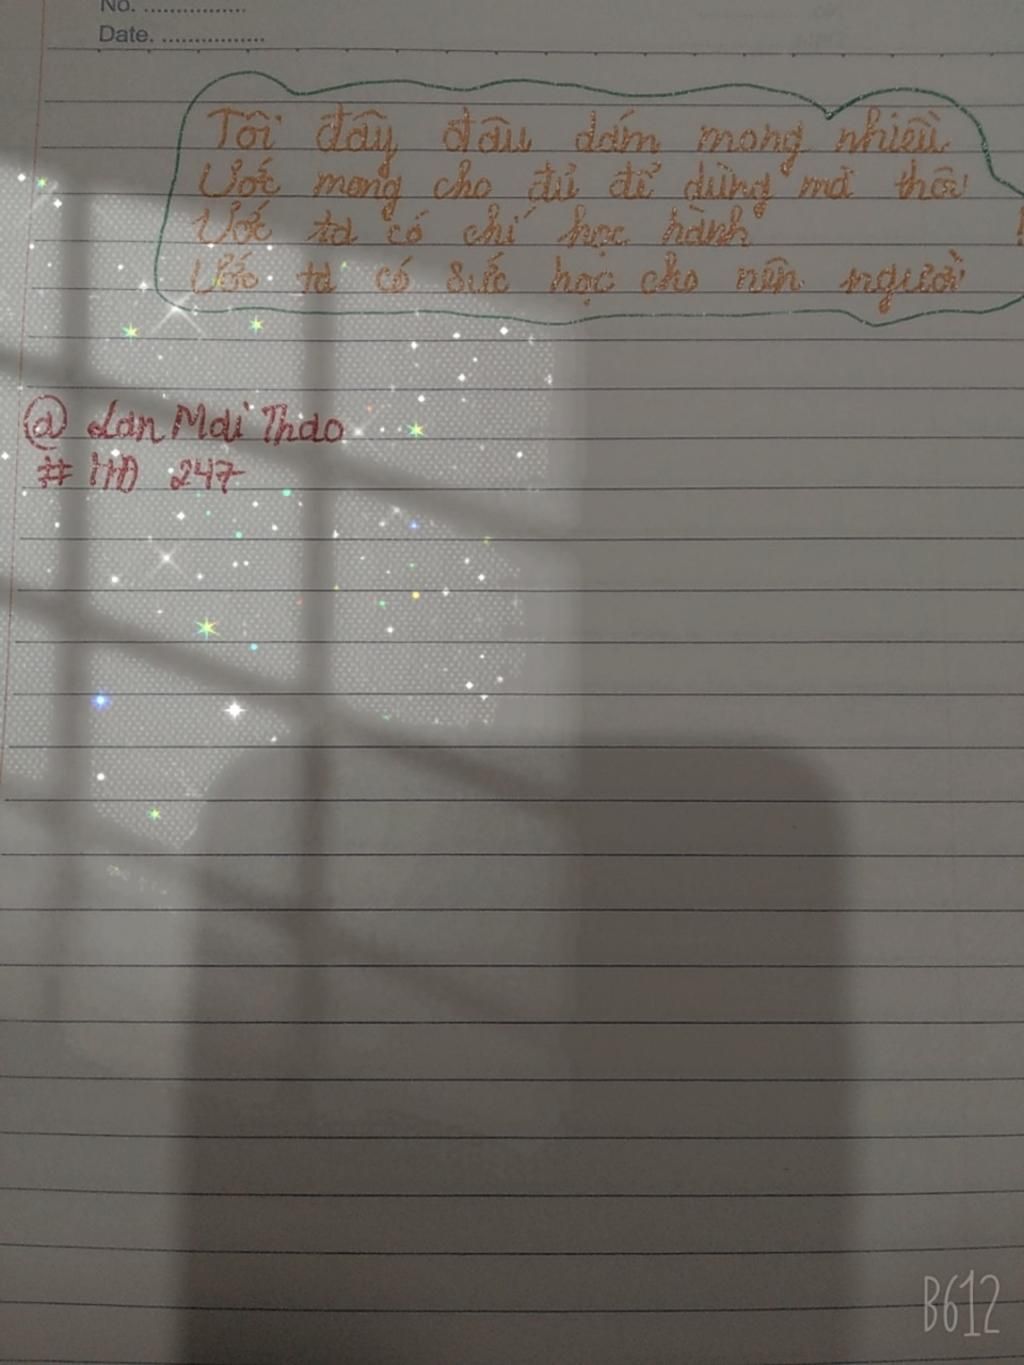 No. ................
Date. ................
Tôi đây đâu dám mong nhiều
Ước mong cho đủ để dùng mà thôi
Ước ta có chí học hành !
Ước ta có sức học cho nên người
@ Lan Mai Thao
# 247
B612